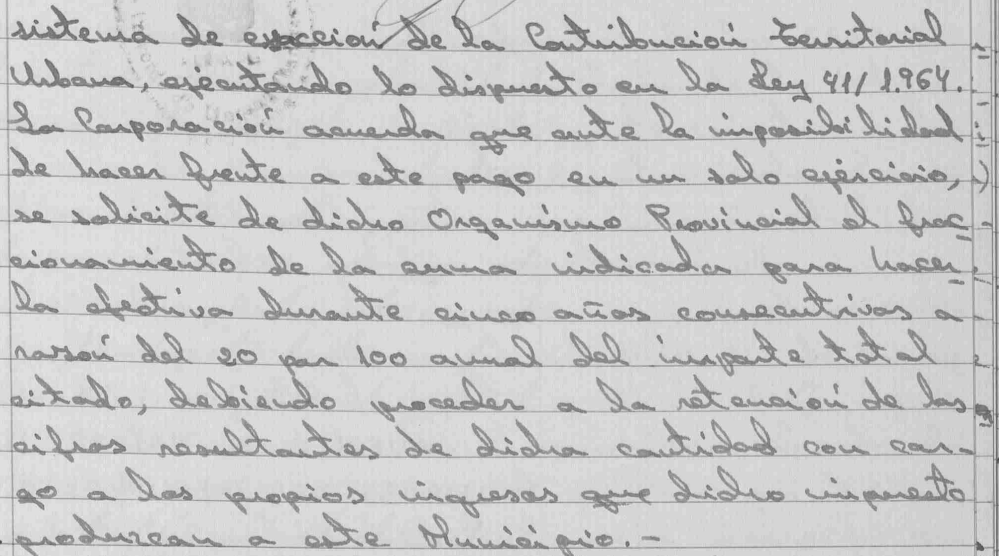 sistema de exaccion de la Contribución Territorial
Urbana, ejecutando lo dispuesto en la Ley 41/1.964.
La Corporación acuerda que ante la imposibilidad
de hacer frente a este pago en un solo ejercicio,
se solicite de dicho Organismo Provincial el frac-
cionamiento de la suma indicada para hacer-
la efectiva durante cinco años consecutivos a
razón del 20 por 100 anual del importe total
citado, debiendo proceder a la retención de las
cifras resultantes de dicha cantidad con car-
go a los propios ingresos que dicho impuesto
produzcan a este Municipio.-